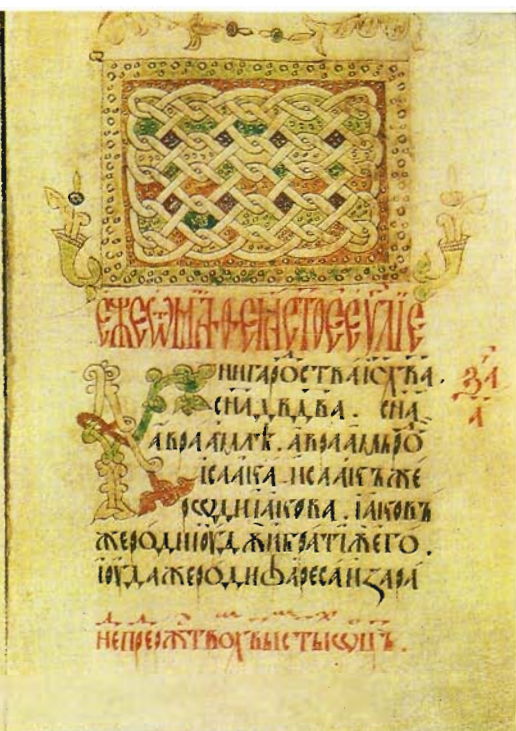 ЕЖЕѾМАѲЕАСТОЕЕѴЛІЕ
КНИГАРОСТВАІСХВА .
ЗА
А
СНАДВДВА . СНА
АВРААМЛѢ . АВРААМЬРО
ІСААКА . ИСААКЪЖЕ
РѠДИІАКОВА . ІАКОВЪ
ЖЕРОДИІОУДѪИБРАТІѪЕГО .
ІОУДАЖЕРОДИФАРЕСАИЗАРА
СТЫѠЦЪ .